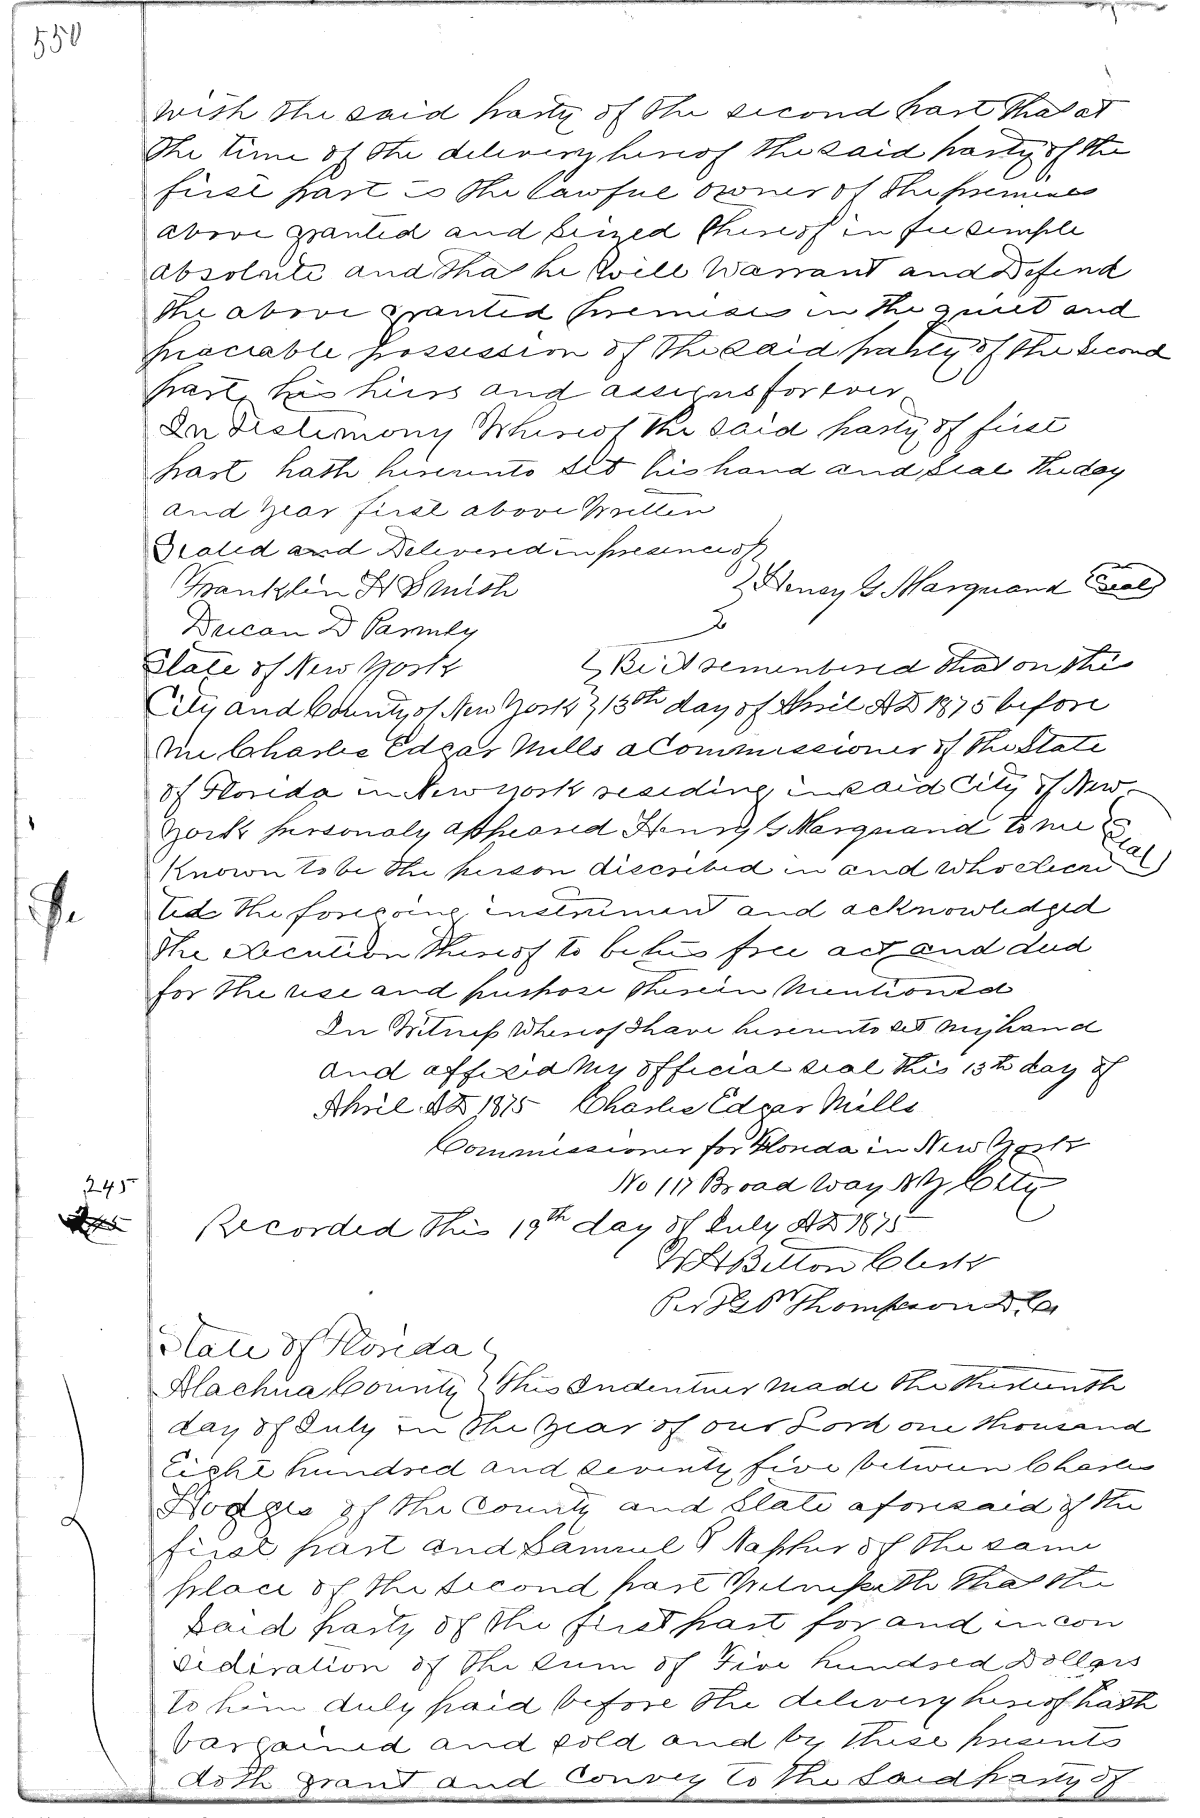 550
with the said party of the second part that at
the time of the delivery hereof the said party of the
first part is the lawful owner of the premises
above granted and seized thereof in fee simple
absolute and that he will Warrant and Defend
the above granted premises in the quiet and
peaceable possession of the said party of the second
part, his heirs and assigns forever
In Testimony Whereof the said party of first
part hath hereunto set his hand and seal the day
and year first above Written
Sealed and Delivered in presence of
Franklin H Smith
Henry G Marquand Seal
Ducan D Parmly
State of New York } Be it remembered that on this
City and County of New York } 13th day of April AD 1875 before
me Charles Edgar Mills a Commissioner of the State
of Florida in New York residing in said City of New
York personaly appeared Henry G Marquand to me Seal
Known to be the person discribed in and who execu
ted the foregoing instrument and acknowledged
the execution thereof to be his free act and deed
for the use and purpose therein Mentioned
In Witness Whereof I have hereunto set my hand
and affixed My official seal this 13th day of
April AD 1875 Charles Edgar Mills
Commissioner for Florida in New York
No 117 Broad Way NY City
245
Recorded this 19th day of July AD 1875
Belton Clerk
Per Thompson D.C.
State of Florida }
Alachua County } This Indenture Made the thirteenth
day of July in the Year of our Lord one thousand
Eight hundred and seventy five between Charles
Hodges of the County and State aforesaid of the
first part and Samuel Napher of the same
place of the second part Witnesseth that the
said party of the first part for and in con
sideration of the sum of Five hundred Dollars
to him duly paid before the delivery hereof hath
bargained and sold and by these presents
doth grant and convey to the said party of